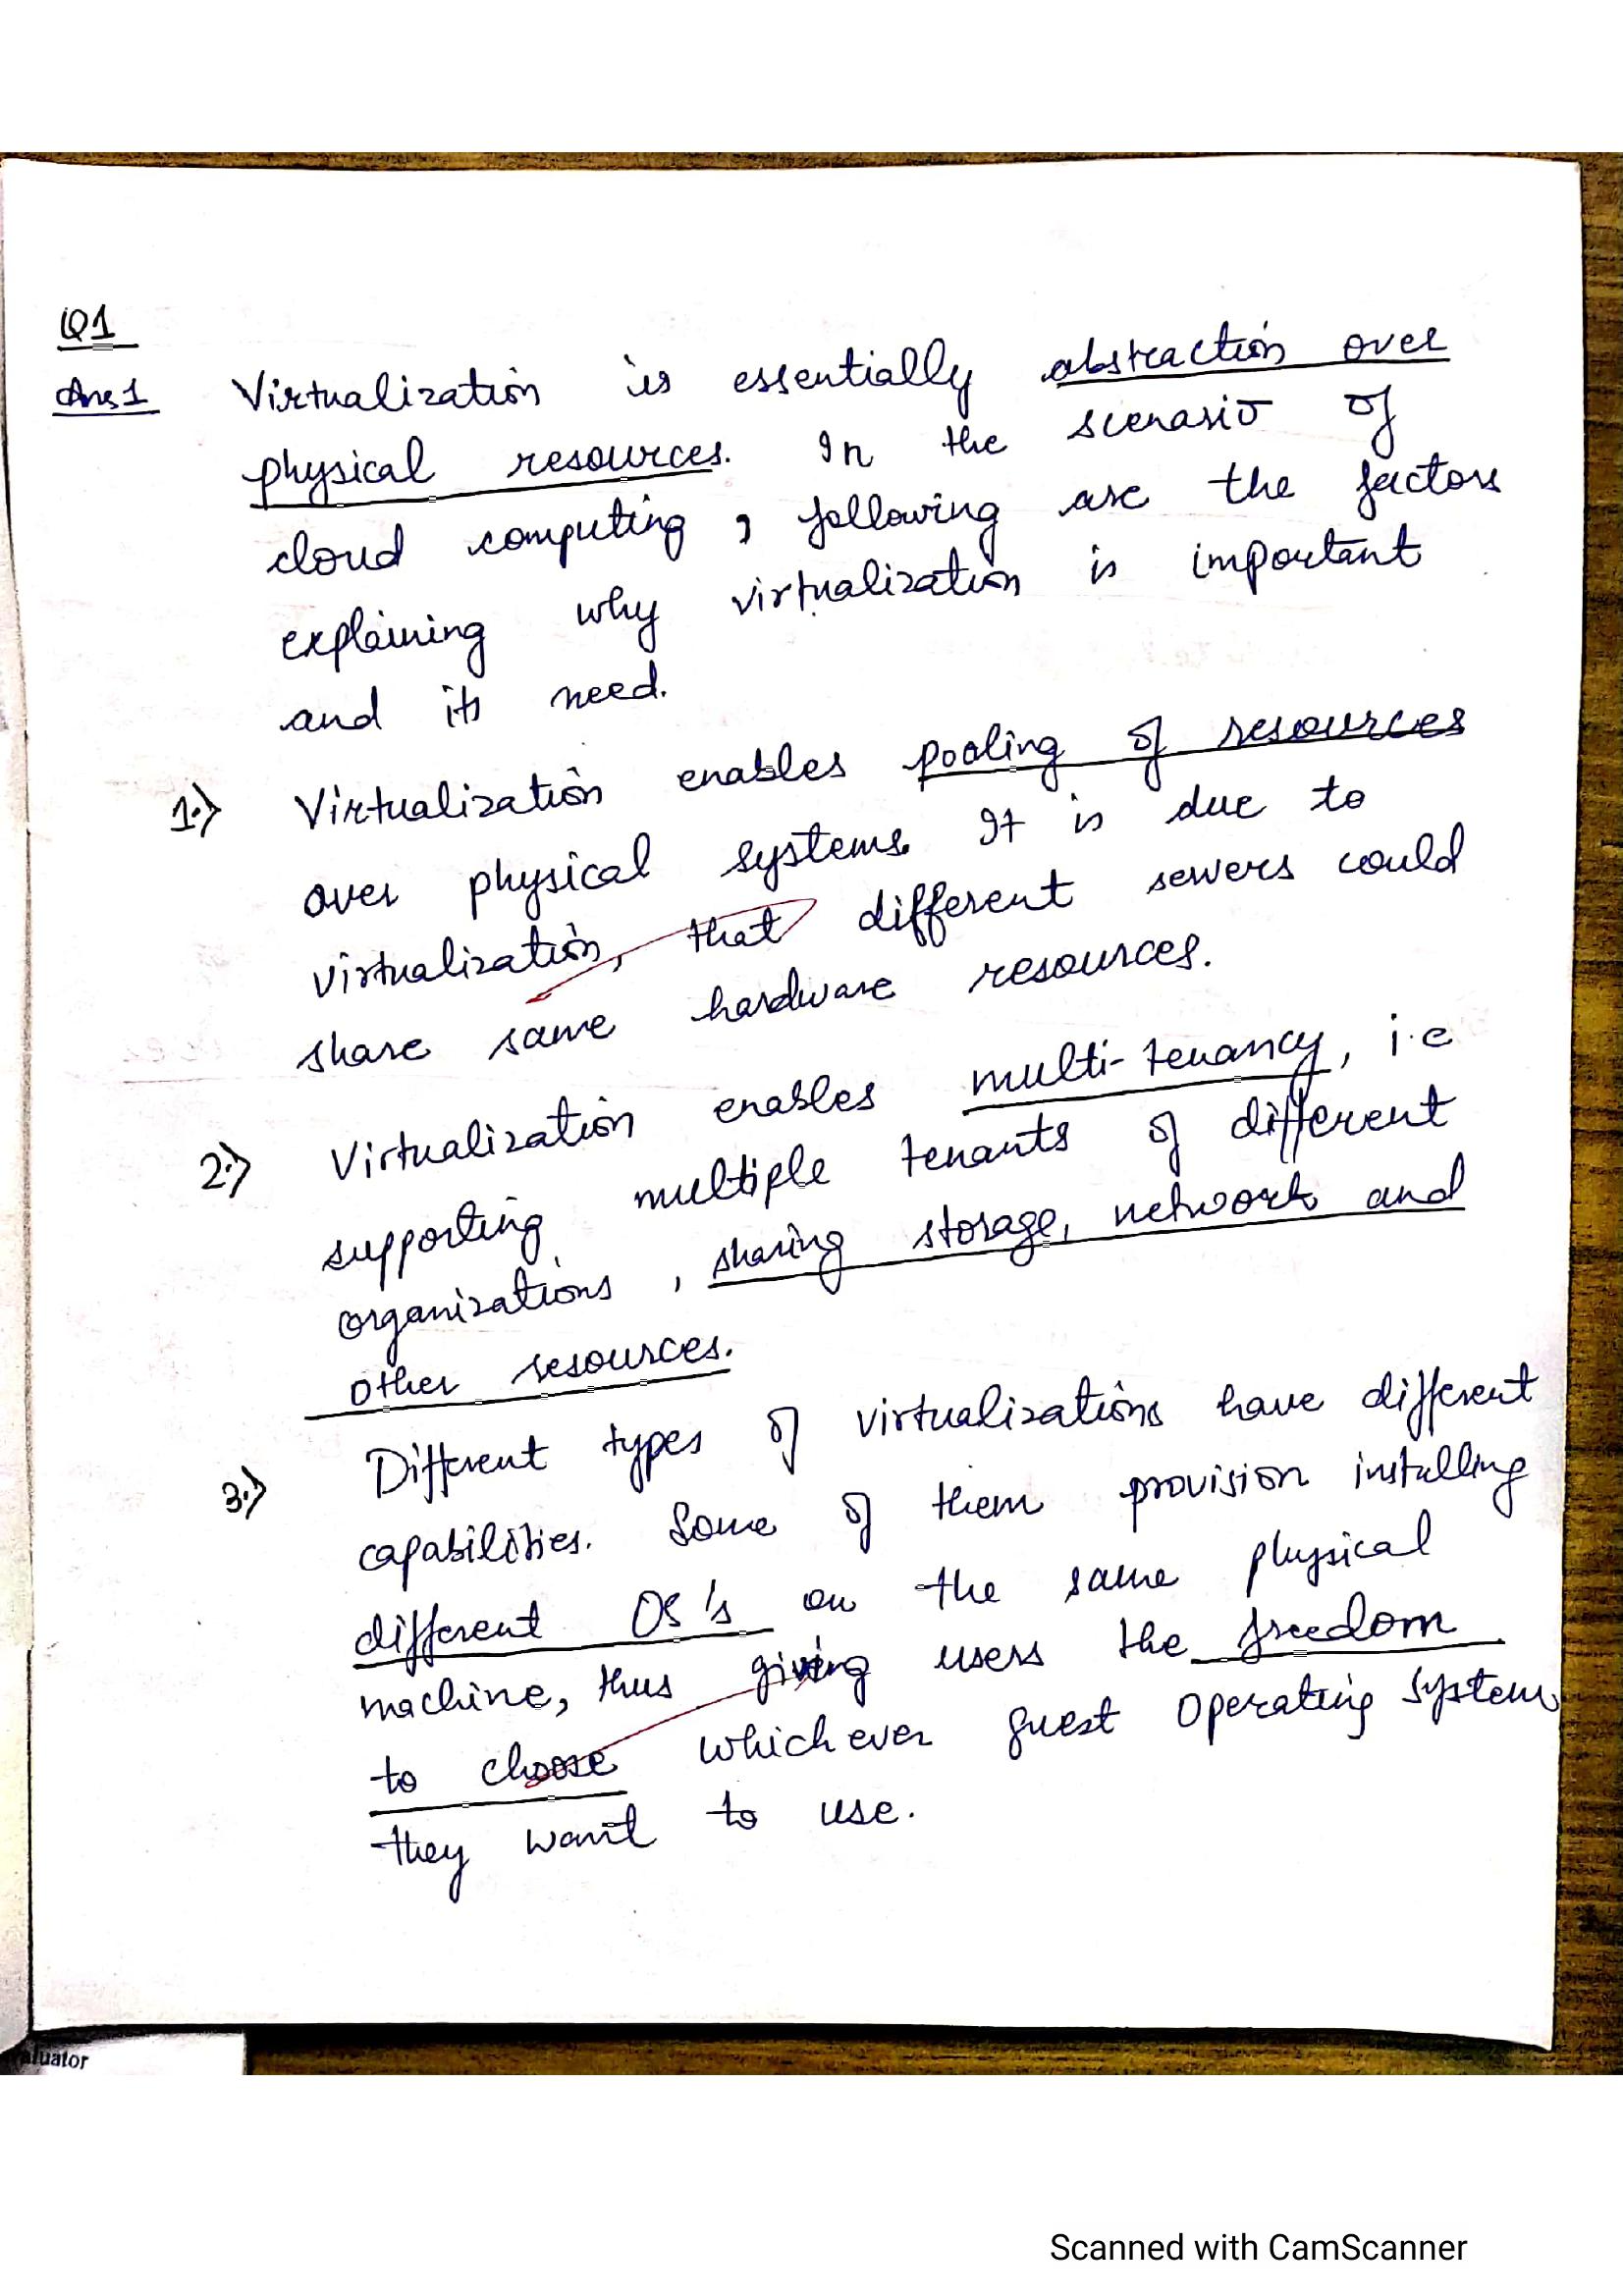 Q1
Ans 1 Virtualization is essentially abstraction over
physical resources. In the scenario of
cloud computing, following are the factors
explaining why virtualization is important
and its need.
1.) Virtualization enables pooling of resources
over physical systems. It is due to
virtualization, that different servers could
share same hardware resources.
2.) Virtualization enables multi-tenancy, i.e
supporting multiple tenants of different
organizations, sharing storage, network and
other resources.
3.) Different types of virtualizations have different
capabilities. Some of them provision installing
different OS's on the same physical
machine, thus giving users the freedom
to choose whichever guest operating system
they want to use.
aluator
Scanned with CamScanner